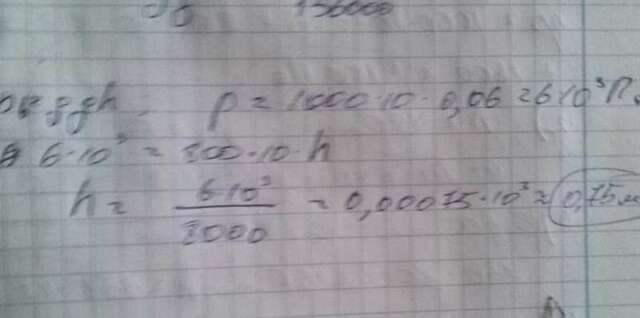 136000
p = ρgh p = 1000·10·0,06 = 6·10³ П
6·10³ = 800·10·h
h = 6·10³ / 8000 = 0,00075·10³ = 0,75 м